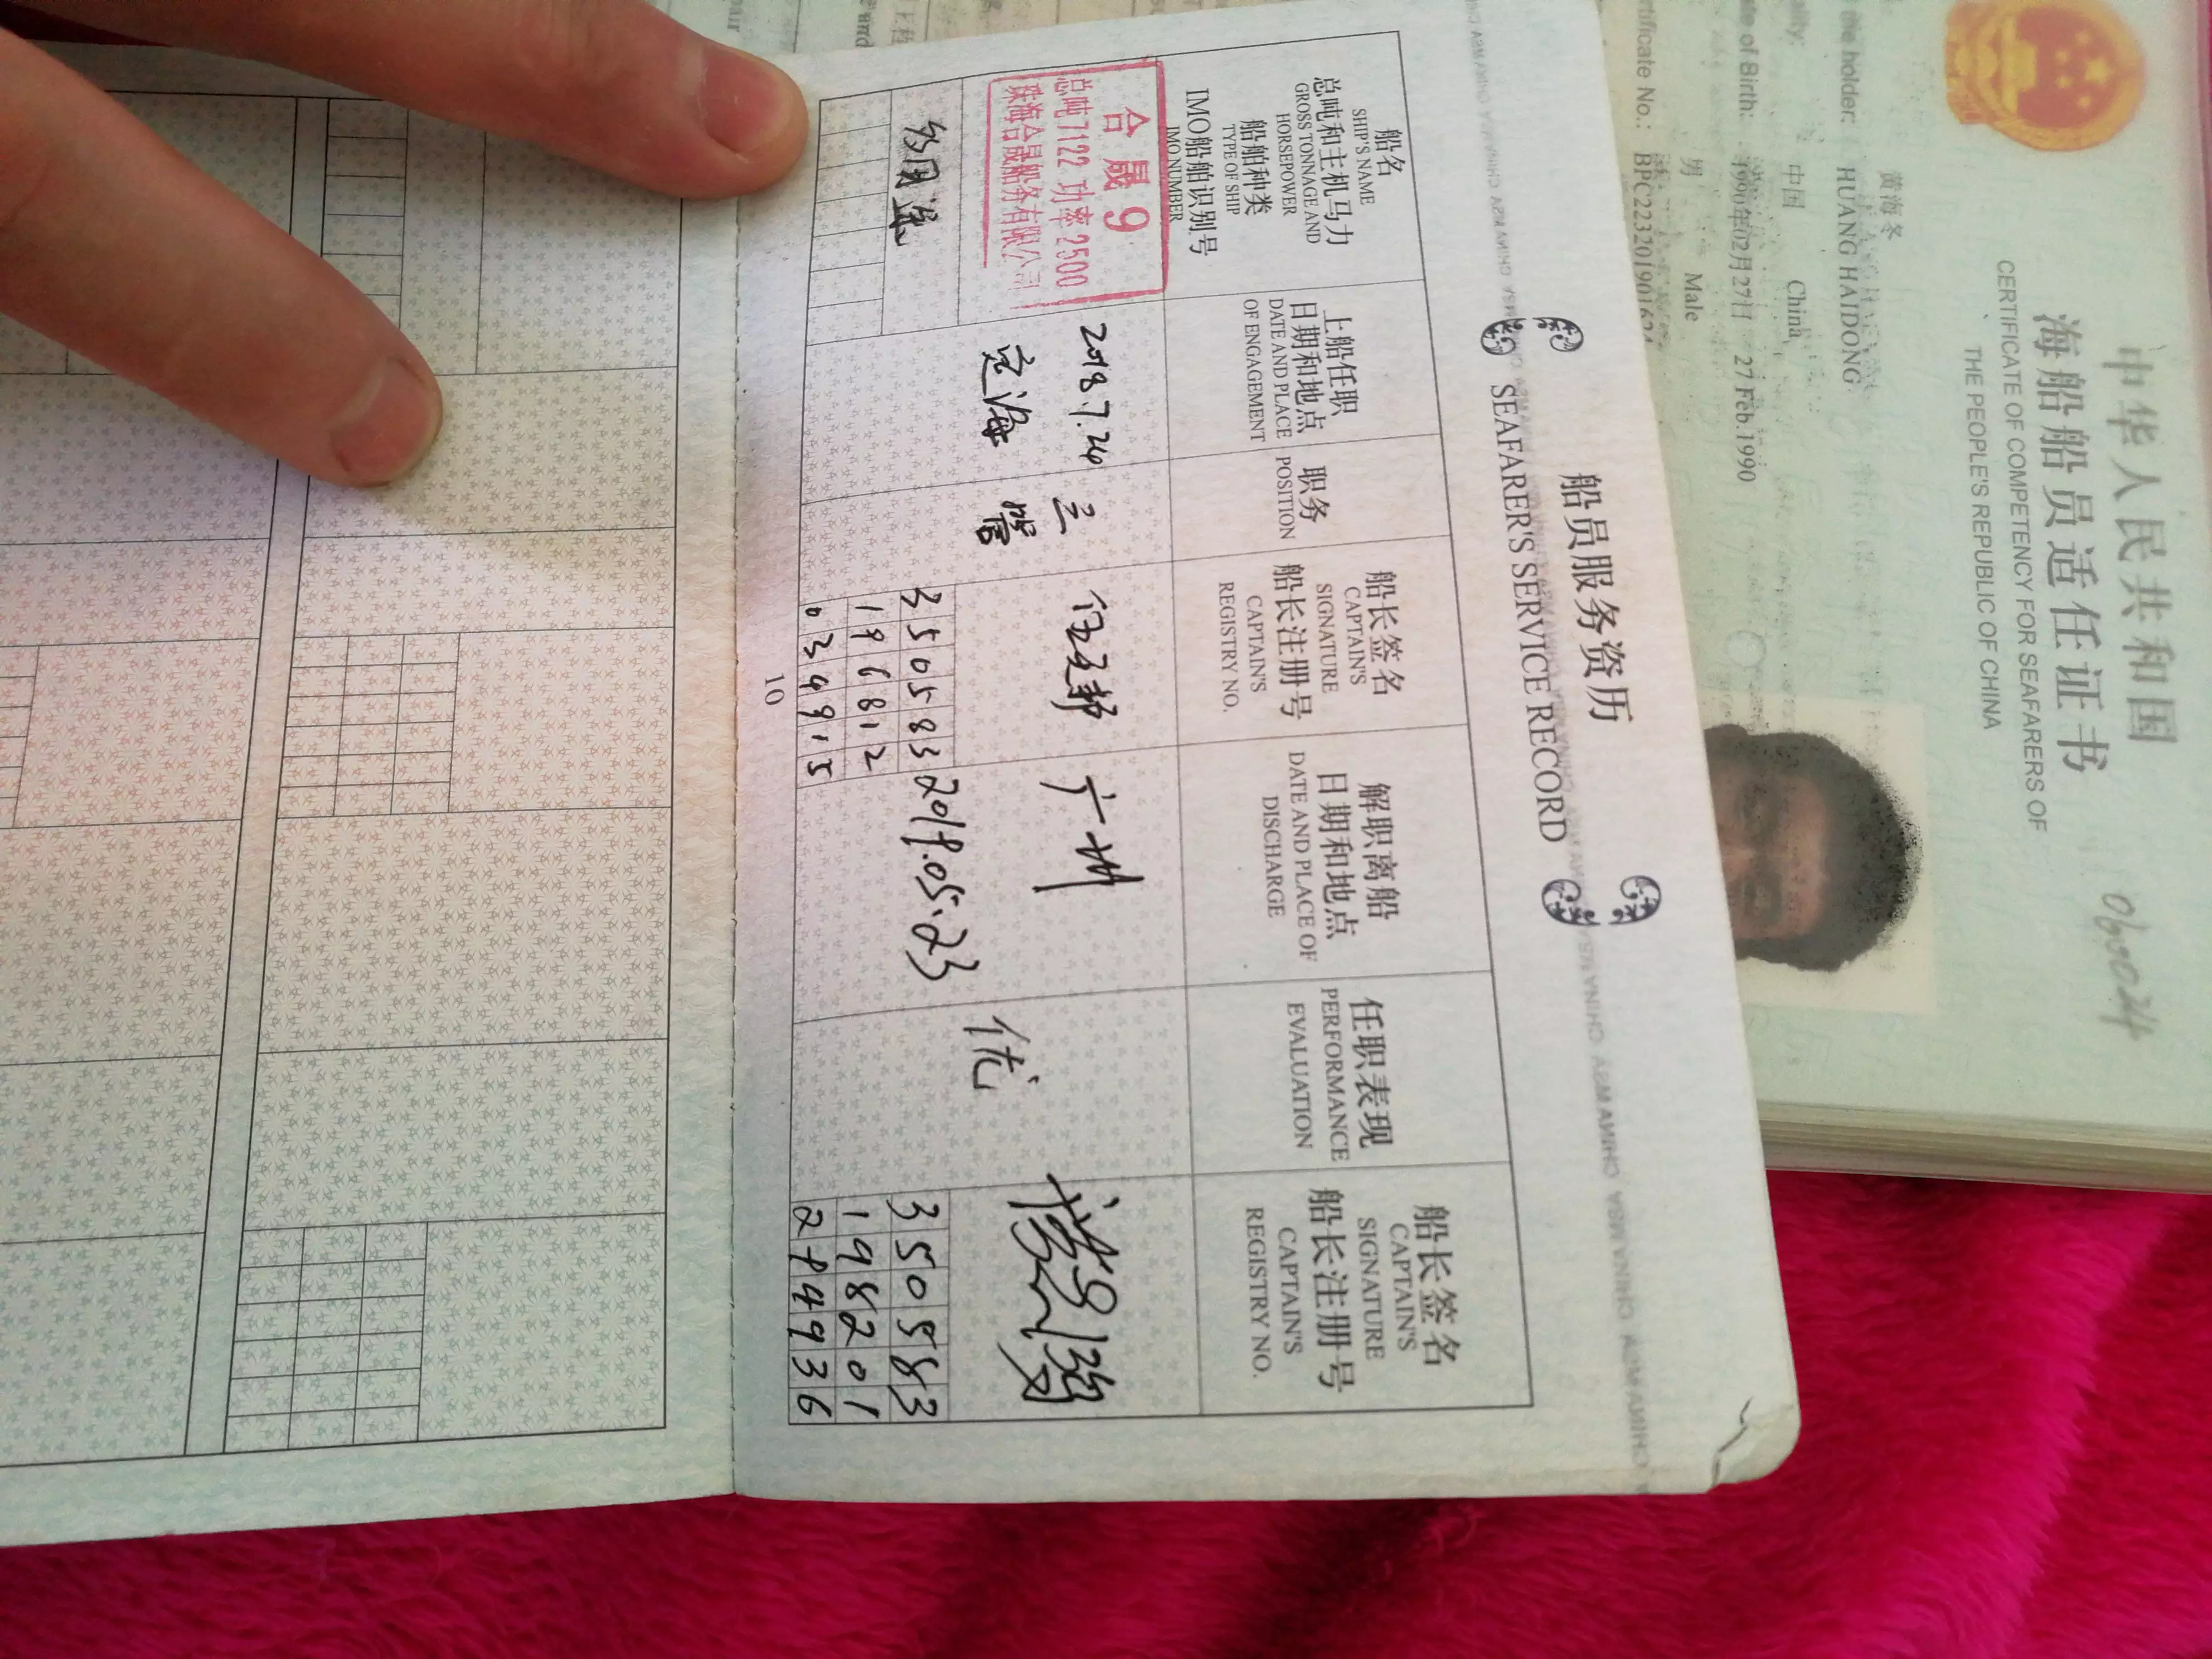 中华人民共和国
海船船员适任证书
CERTIFICATE OF COMPETENCY FOR SEAFARERS OF
THE PEOPLE'S REPUBLIC OF CHINA
黄海冬
the holder: HUANG HAIDONG
中国 China
男 Male
1990年02月27日 27 Feb.1990
of Birth:
Certificate No.: BPC223201901624
船员服务资历
SEAFARER'S SERVICE RECORD
船名
SHIP'S NAME
总吨和主机马力
GROSS TONNAGE AND
HORSEPOWER
船舶种类
TYPE OF SHIP
IMO船舶识别号
IMO NUMBER
上船任职
日期和地点
DATE AND PLACE
OF ENGAGEMENT
职务
POSITION
船长签名
CAPTAIN'S
SIGNATURE
船长注册号
CAPTAIN'S
REGISTRY NO.
解职离船
日期和地点
DATE AND PLACE OF
DISCHARGE
任职表现
PERFORMANCE
EVALUATION
船长签名
CAPTAIN'S
SIGNATURE
船长注册号
CAPTAIN'S
REGISTRY NO.
合晟9
总吨7122 功率2500
珠海合晟船务有限公司
多用途
2018.7.24
定海
三管
350583
196812
034915
广州
2019.05.23
优
350583
198201
249936
10